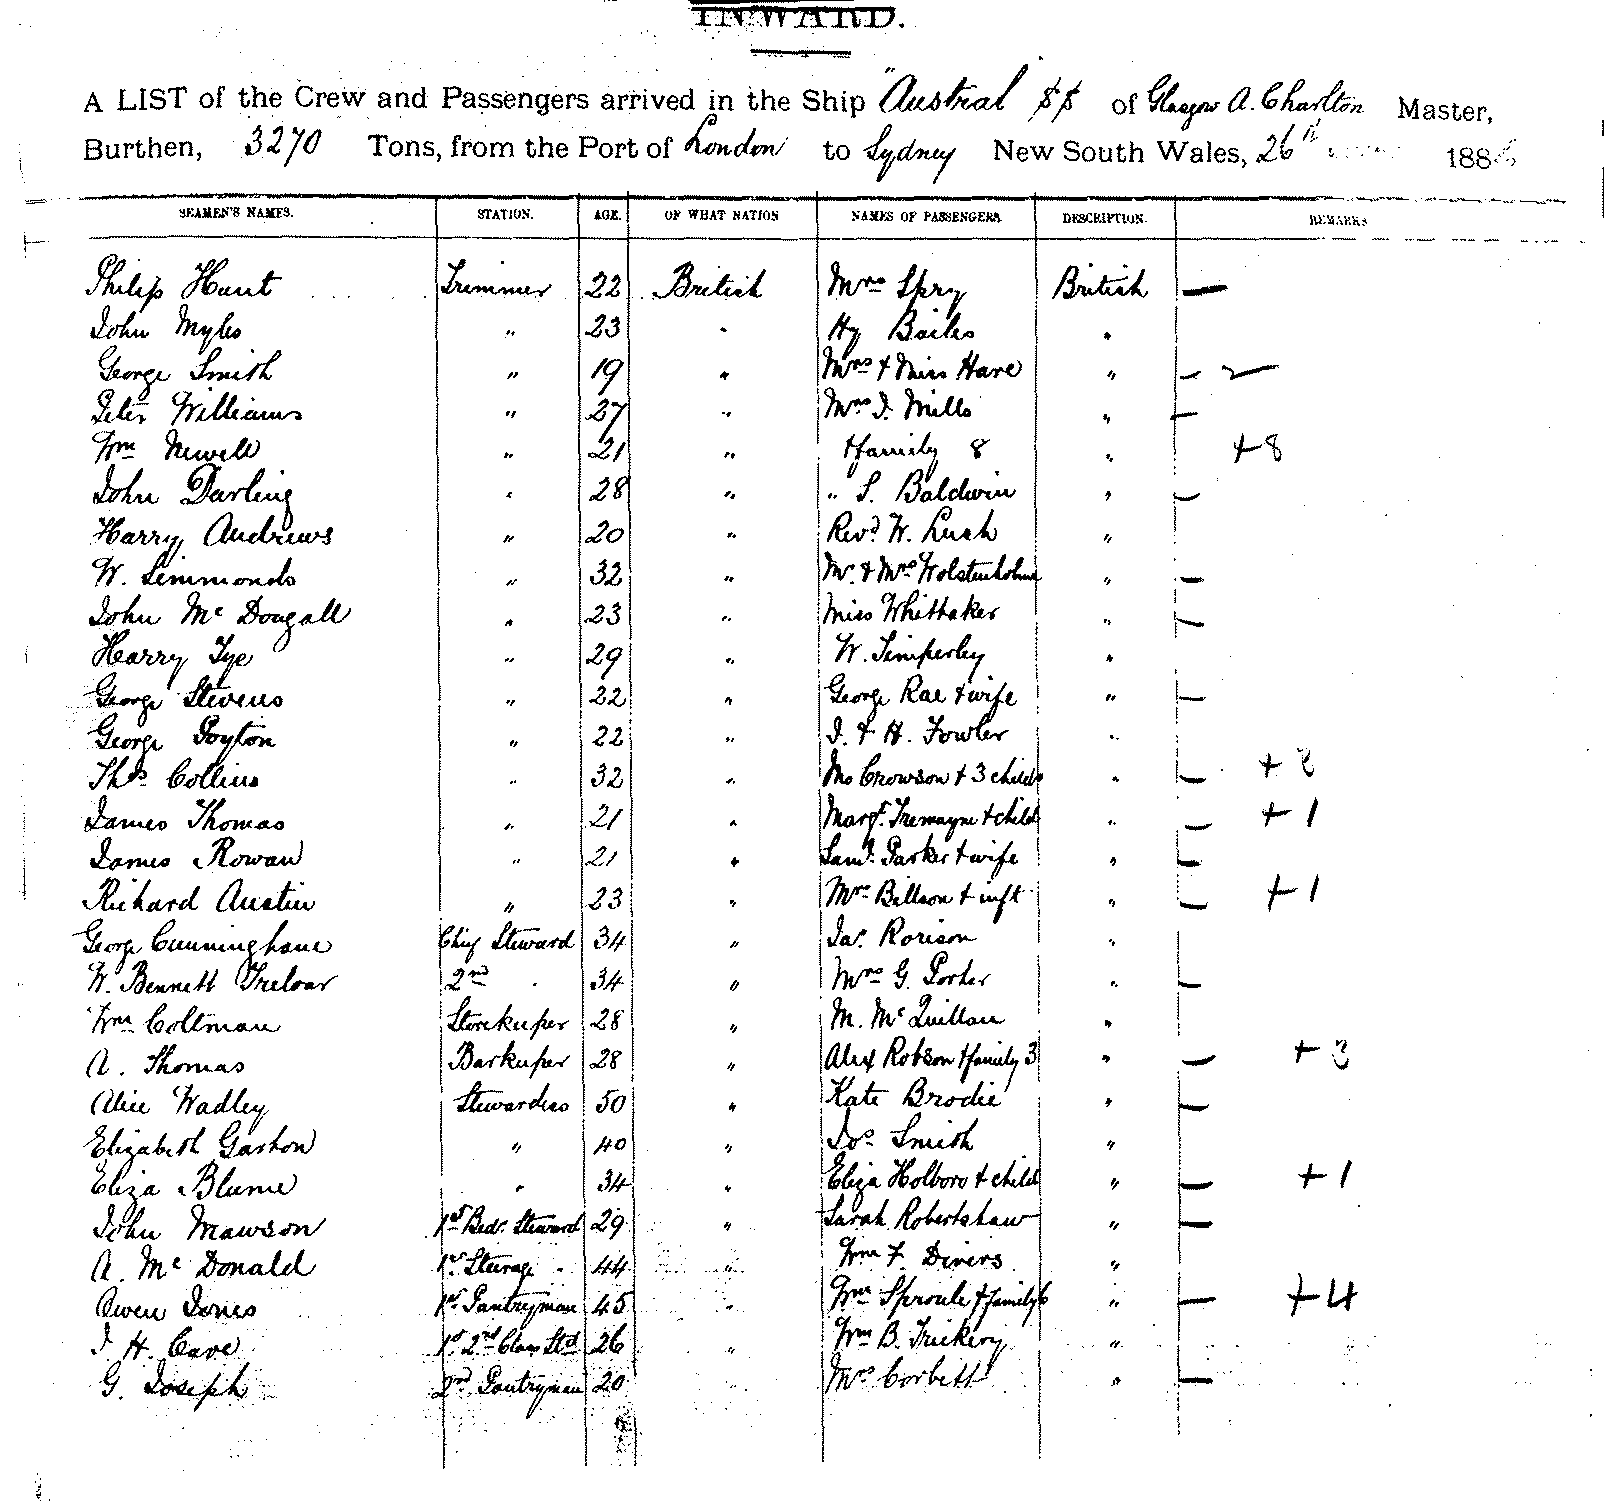 INWARD.
A LIST of the Crew and Passengers arrived in the Ship "Austral SS of Glasgow A. Charlton Master,
Burthen, 3270 Tons, from the Port of London to Sydney New South Wales, 26th 188
SEAMEN'S NAMES. STATION. AGE. OF WHAT NATION NAMES OF PASSENGERS DESCRIPTION. REMARKS
Philip Hunt Trimmer 22 British Mrs Spry British —
John Myles " 23 " Hy Bailes "
George Smith " 19 " Mrs & Miss Hare " — 2
Peter Williams " 27 " Mrs J. Mills " —
Wm Newell " 21 " & family 8 " +8
John Darling " 28 " " S. Baldwin " —
Harry Andrews " 20 " Revd W. Lush "
W. Simmonds " 32 " Mr & Mrs Wolstenholme " —
John Mc Dougall " 23 " Miss Whittaker " —
Harry Tye " 29 " W. Timperley "
George Stevens " 22 " George Rae & wife " —
George Poyton " 22 " J. & H. Fowler "
Thos Collins " 32 " Crowson & 3 childn " — +
James Thomas " 21 " Margt Tremayne & child " — +1
James Rowan " 21 " Saml Parker & wife " —
Richard Austin " 23 " Mrs Billson & inft " — +1
George Cunninghame Chief Steward 34 " Jas Rorison "
W. Bennett Treloar 2nd " 34 " Mrs G. Porter " —
Wm Coltman Storekeeper 28 " M. Mc Quillan "
A. Thomas Barkeeper 28 " Alex Robson & family 3 " — +3
Alice Wadley Stewardess 50 " Kate Brodie " —
Elizabeth Gashon " 40 " Jos Smith "
Eliza Blume " 34 " Eliza Holboro & child " — +1
John Mawson 1st Bedr. Steward 29 " Sarah Robertshaw " —
A. Mc Donald 1st Steerage " 44 " Wm F. Divers "
Owen Jones 1st Pantryman 45 " Wm Sproule & family 6 " — +4
J H. Cave 1st 2nd Class Std 26 " Wm B. Trickery "
G. Joseph 2nd Pantryman 20 " Mrs Corbett " —